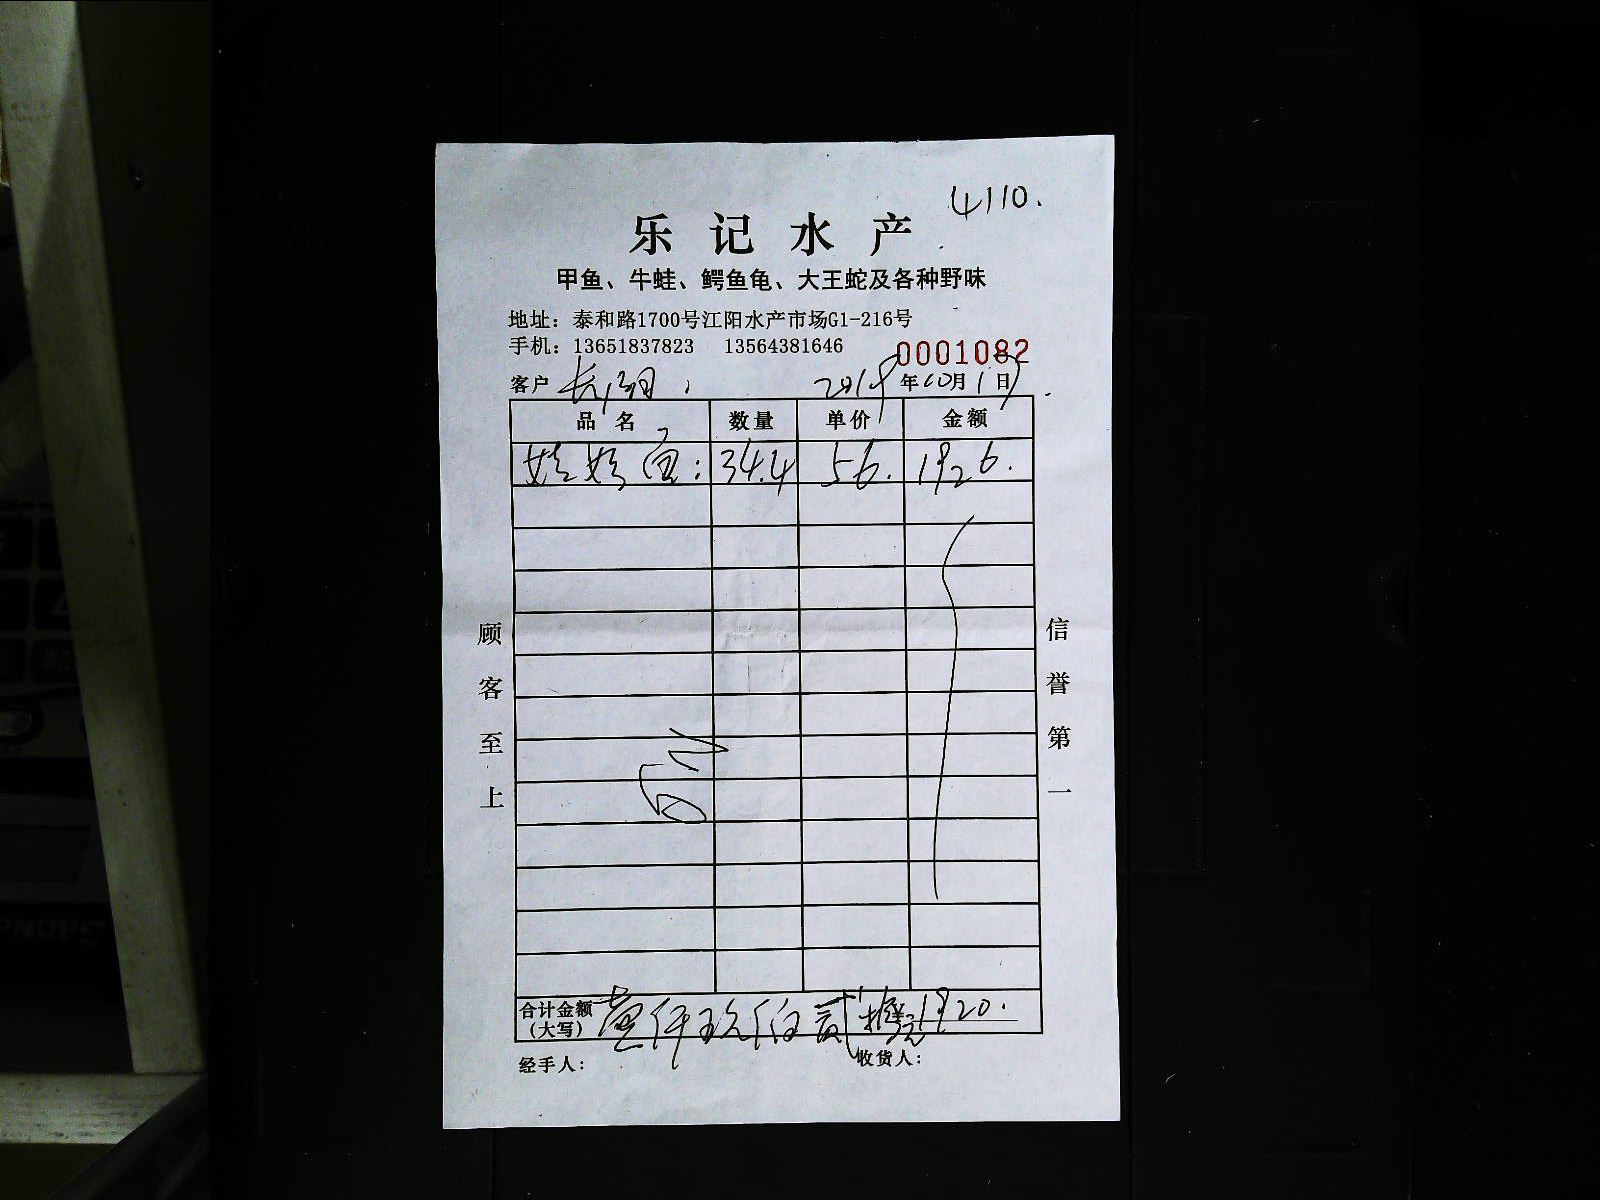 4110.
乐记水产
甲鱼、牛蛙、鳄鱼龟、大王蛇及各种野味
地址：泰和路1700号江阳水产市场G1-216号
手机：13651837823 13564381646
0001082
客户 年10月1日
品名 数量 单价 金额
娃娃鱼: 34.4 56. 1926.
顾客至上
信誉第一
合计金额（大写） 壹仟玖佰贰拾元 1920.
经手人： 收货人：